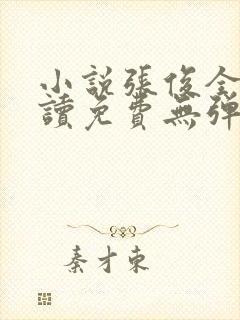 小說張俊全
讀免費無彈
秦才東